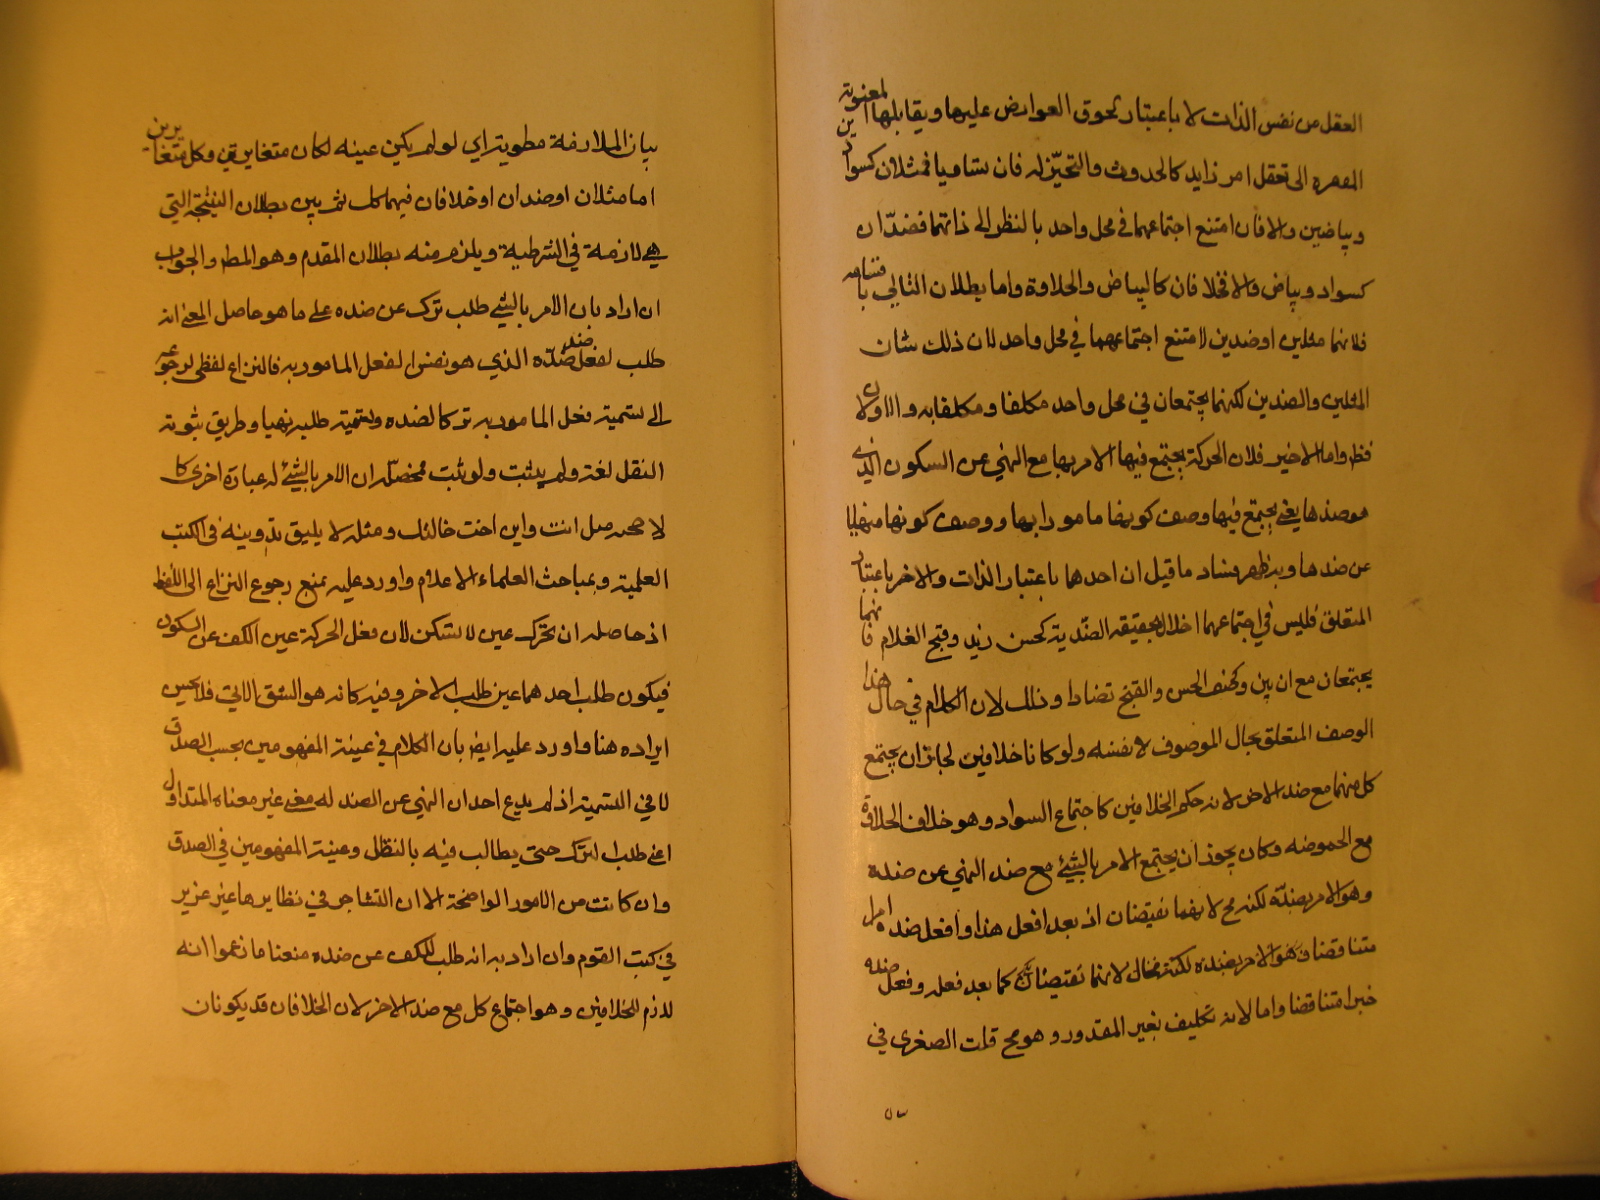 العقل من نفس الذات لا باعتبار لحوق العوارض عليها ويقابلها المعنوية
المفتقرة الى تعقل امر زايد كالحدوث والتحيّز له فان تساويا فمثلان كسوادين
وبياضين والا فان امتنع اجتماعهما في محل واحد بالنظر الى ذاتهما فضدّان
كسواد وبياض والا فخلافان كالبياض والحلاوة واما بطلان التالي باقسامه
فلانهما مثلين او ضدين لامتنع اجتماعهما في محل واحد لان ذلك شان
المثلين والضدين لكنهما يجتمعان في محل واحد مكلفا ومكلفا به والاولان
فظ واما الاخير فلان الحركة يجتمع فيها الامر بها مع النهي عن السكون الذي
هو ضدها يعني يجتمع فيها وصف كونها مامورا بها ووصف كونها منهيا
عن ضدها وبه ظهر فساد ما قيل ان احدها باعتبار الذات والاخر باعتبار
المتعلق فليس في اجتماعهما اخلال بحقيقة الضدية كحسن زيد وقبح الغلام فانهما
يجتمعان مع ان بين وكنف الحسن والقبح تضادا وذلك لان الكلام في هذا حال
الوصف المتعلق بحال الموصوف لا نفسه ولو كانا خلافين لجاز ان يجتمع
كل منهما مع ضد الاخر لانه حكم الخلافين كاجتماع السواد وهو خلاف الحلاوة
مع الحموضة وكان يجوز ان يجتمع الامر بالشيئ مع ضد النهي عن ضده
وهو الامر بضدّه لكنه مح لانهما نقيضان اذ يعد افعل هذا وافعل ضده امرا
متناقضا وهو الامر بضده لكنه محال لانهما نقيضان كما يعد فعله وفعل ضده
خبرا متناقضا واما لانه تكليف بغير المقدور وهو مح قلت الصغرى في
بيان الملازمة مطوية اي لو لم يكن عينه لكان متغايرين وكل متغايرين
اما مثلان او ضدان او خلافان فيهما كل ثم بين بطلان النتيجة التي
هي لازمة في الشرطية ويلزم منه بطلان المقدم وهو المط والجواب
ان اراد بان الامر بالشيئ طلب ترك عن ضده على ما هو حاصل المعنى انه
طلب لفعل ضد ضدّه الذي هو نفس لفعل المامور به فالنزاع لفظي لرجوعه
الى تسمية فعل المامور به تركا لضده وتسمية طلبه نهيا وطريق ثبوته
النقل لغة ولم يثبت ولو ثبت فمحصّله ان الامر بالشيئ له عبارة اخرى كا
لاحجه مل انت وابن اخت خالتك ومثله لا يليق تدوينه في الكتب
العلمية ومباحث العلماء الاعلام واورد عليه بمنع رجوع النزاع الى اللفظ
اذ حاصله ان تحرك عين لا تسكن لان فعل الحركة عين الكف عن السكون
فيكون طلب احدهما عين طلب الاخر وفيه كانه هو الشق الاتي فلا يحسن
ايراده هنا واورد عليه ايض بان الكلام في عينية المفهومين بحسب الصدق
لا في التسمية اذ لم يدع احد ان النهي عن الضد له معنى غير معناه المتداول
اعني طلب الترك حتى يطالب فيه بالنظل وعينية المفهومين في الصدق
وان كانت من الامور الواضحة الا ان التشاجر في نظايرها غير عزيز
في كتب القوم وان اراد به انه طلب للكف عن ضده منعنا ما زعموا انه
لازم للخلافين وهو اجتماع كل مع ضد الاخر لان الخلافان قد يكونان